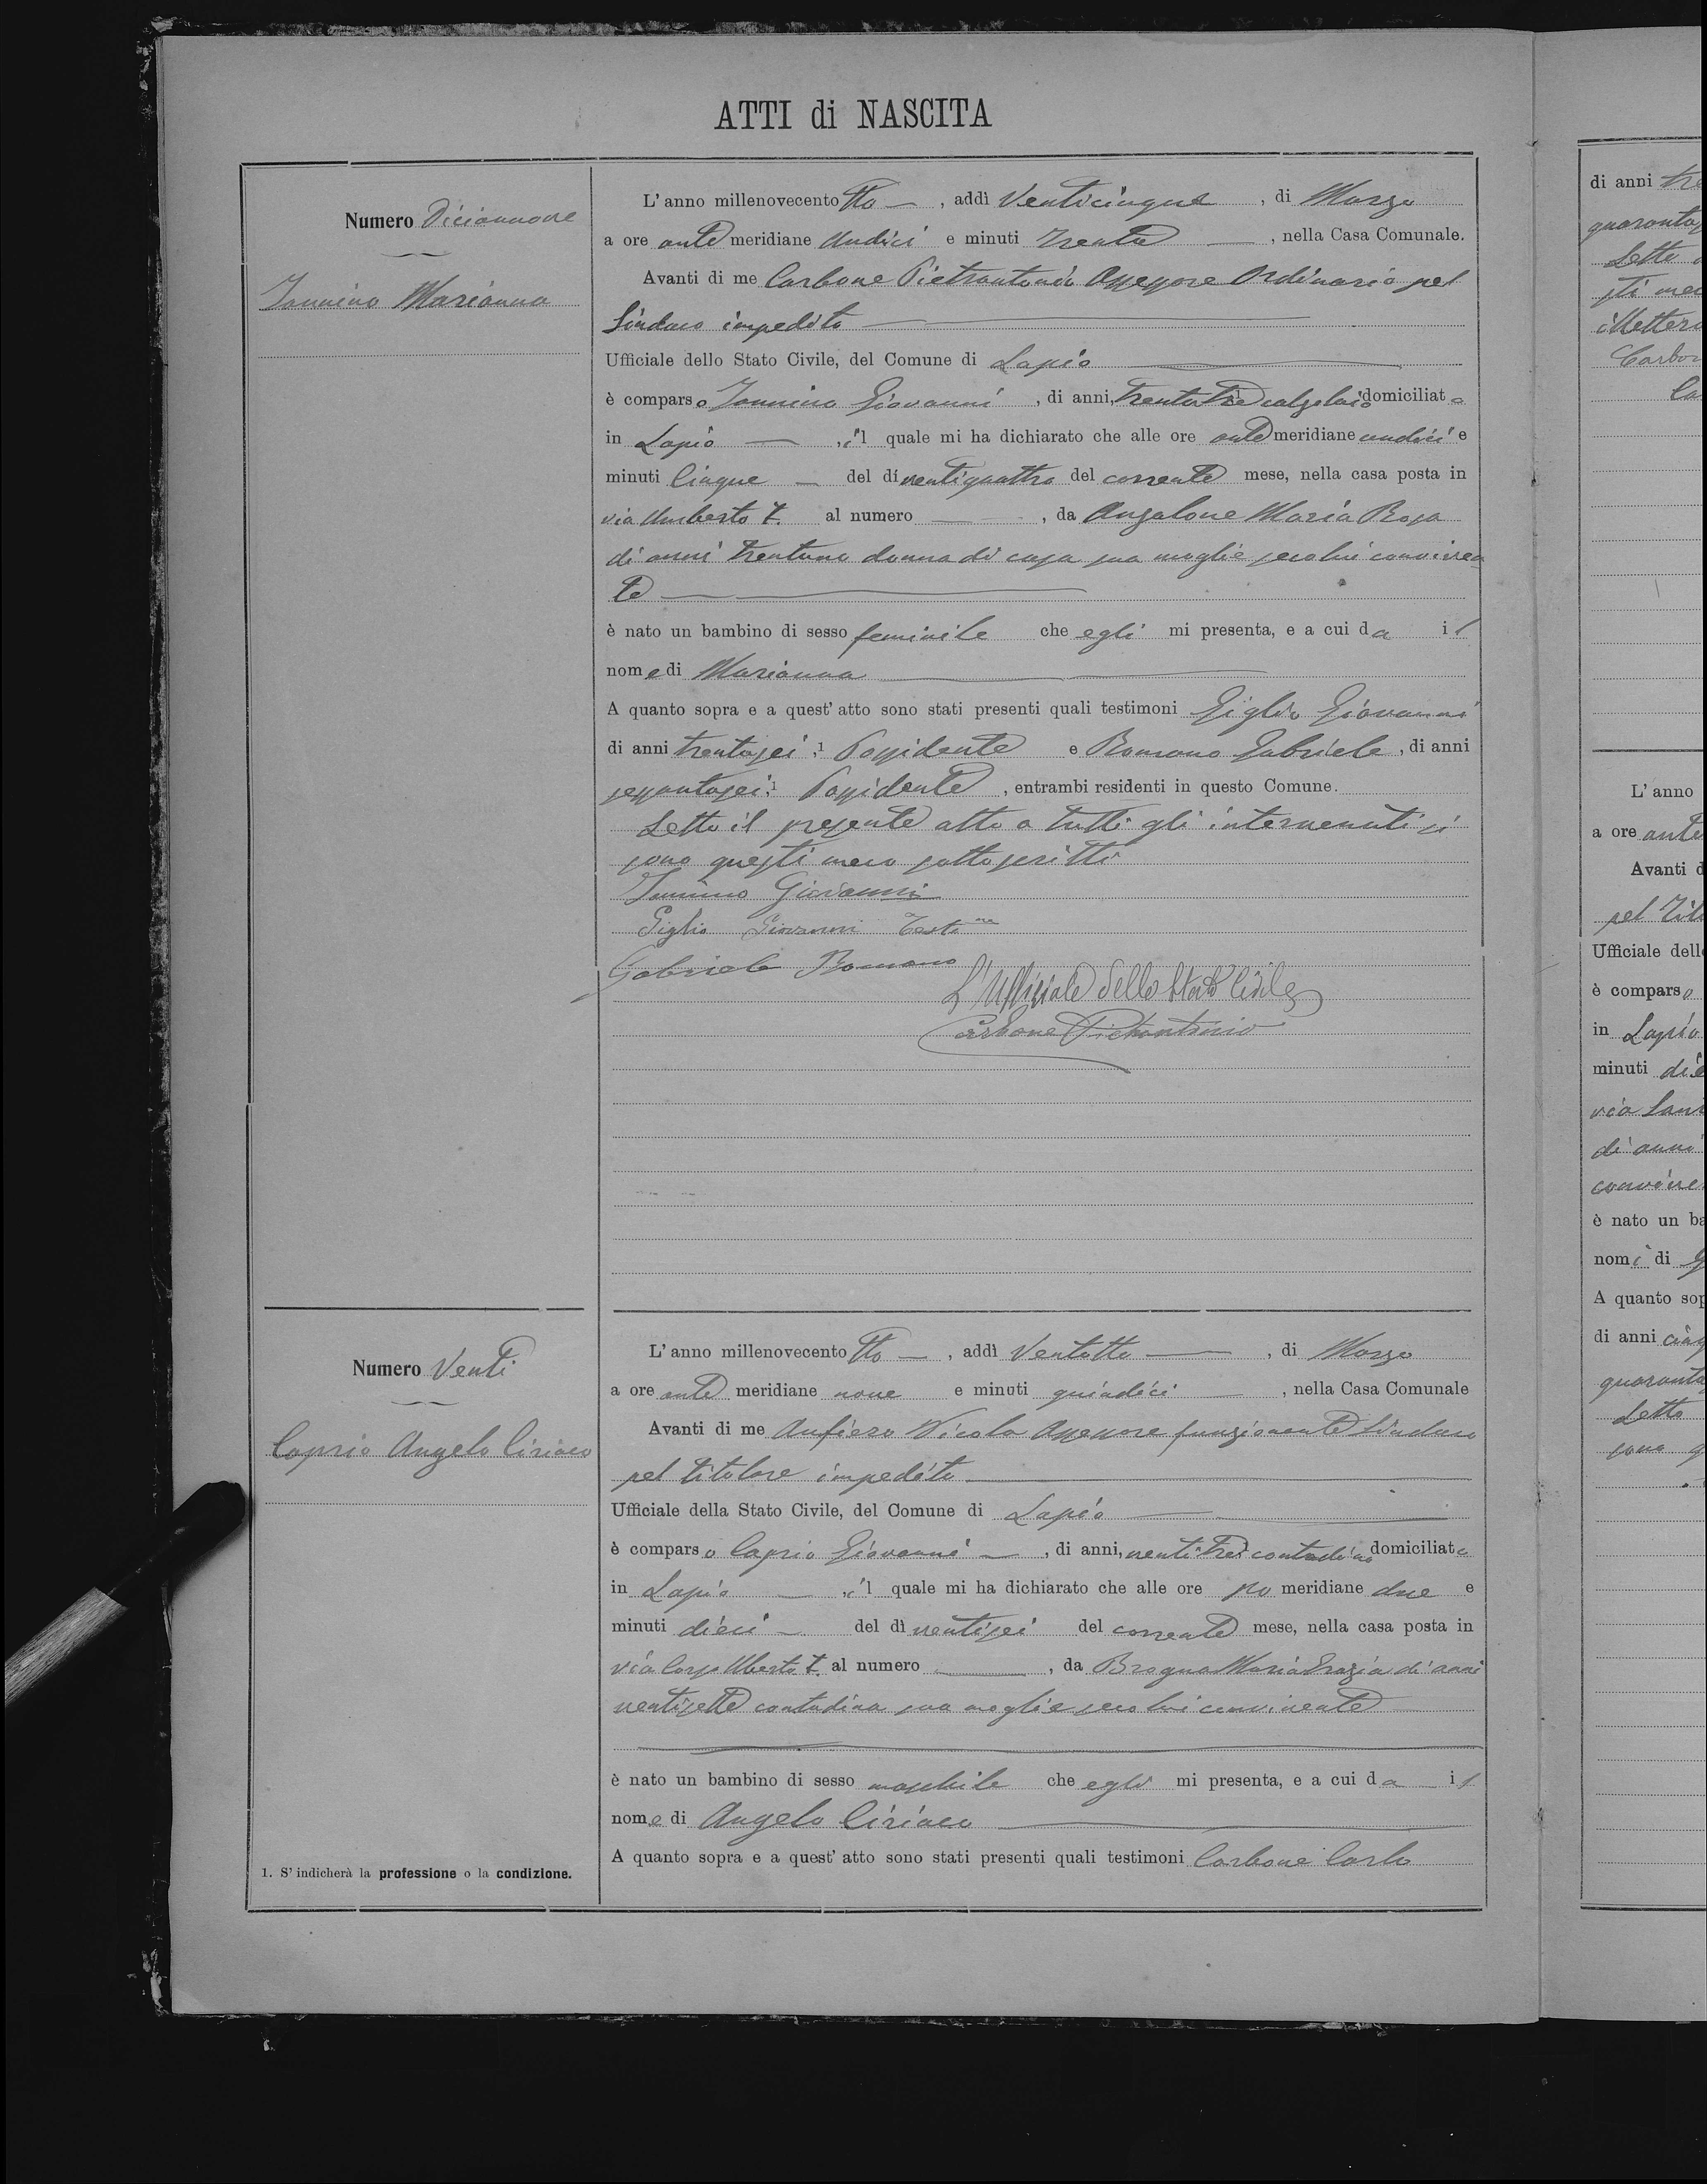 ATTI di NASCITA
Numero Diciannove
Iannino Marianna
L'anno millenovecento tto — , addì Venticinque , di Marzo
a ore ante meridiane Undici e minuti Trenta — , nella Casa Comunale.
Avanti di me Carbone Pietrantonio Assessore Ordinario pel
Sindaco impedito —
Ufficiale dello Stato Civile, del Comune di Lapio —
è comparso Iannino Giovanni , di anni, trentatre calzolaio domiciliato
in Lapio — , il quale mi ha dichiarato che alle ore ante meridiane undici e
minuti Cinque — del dì ventiquattro del corrente mese, nella casa posta in
via Umberto I. al numero — , da Anzalone Maria Rosa
di anni trentuno donna di casa sua moglie seco lui conviven
te —
è nato un bambino di sesso feminile che egli mi presenta, e a cui da il
nome di Marianna —
A quanto sopra e a quest'atto sono stati presenti quali testimoni Giglio Giovanni
di anni trentasei ,1 Possidente e Romano Gabriele , di anni
sessantasei ,1 Possidente , entrambi residenti in questo Comune.
Letto il presente atto a tutti gli intervenuti si
sono questi meco sottoscritti
Iannino Giovanni
Giglio Giovanni Testne
Gabriele Romano
L'Uffiziale dello Stato Civile
Carbone Pietrantonio
Numero Venti
Caprio Angelo Ciriaco
L'anno millenovecento tto — , addì Ventotto — , di Marzo
a ore ante meridiane nove e minuti quindici — , nella Casa Comunale
Avanti di me Anfiero Nicola Assessore funzionante Sindaco
pel titolare impedito —
Ufficiale della Stato Civile, del Comune di Lapio —
è comparso Caprio Giovanni — , di anni, ventitre contadino domiciliato
in Lapio — , il quale mi ha dichiarato che alle ore po meridiane due e
minuti dieci — del dì ventisei del corrente mese, nella casa posta in
via Corso Uberto I. al numero — , da Brogna Maria Grazia di anni
ventisette contadina sua moglie seco lui convivente
è nato un bambino di sesso maschile che egli mi presenta, e a cui da il
nome di Angelo Ciriaco —
A quanto sopra e a quest'atto sono stati presenti quali testimoni Carbone Carlo
1. S'indicherà la professione o la condizione.
di anni
Letto
Carbon
L'anno
a ore ante
Avanti d
pel
Ufficiale dell
è comparso
in Lapio
minuti
via
di anni
è nato un ba
nomi di
A quanto sop
di anni
quaranta
Letto
sono